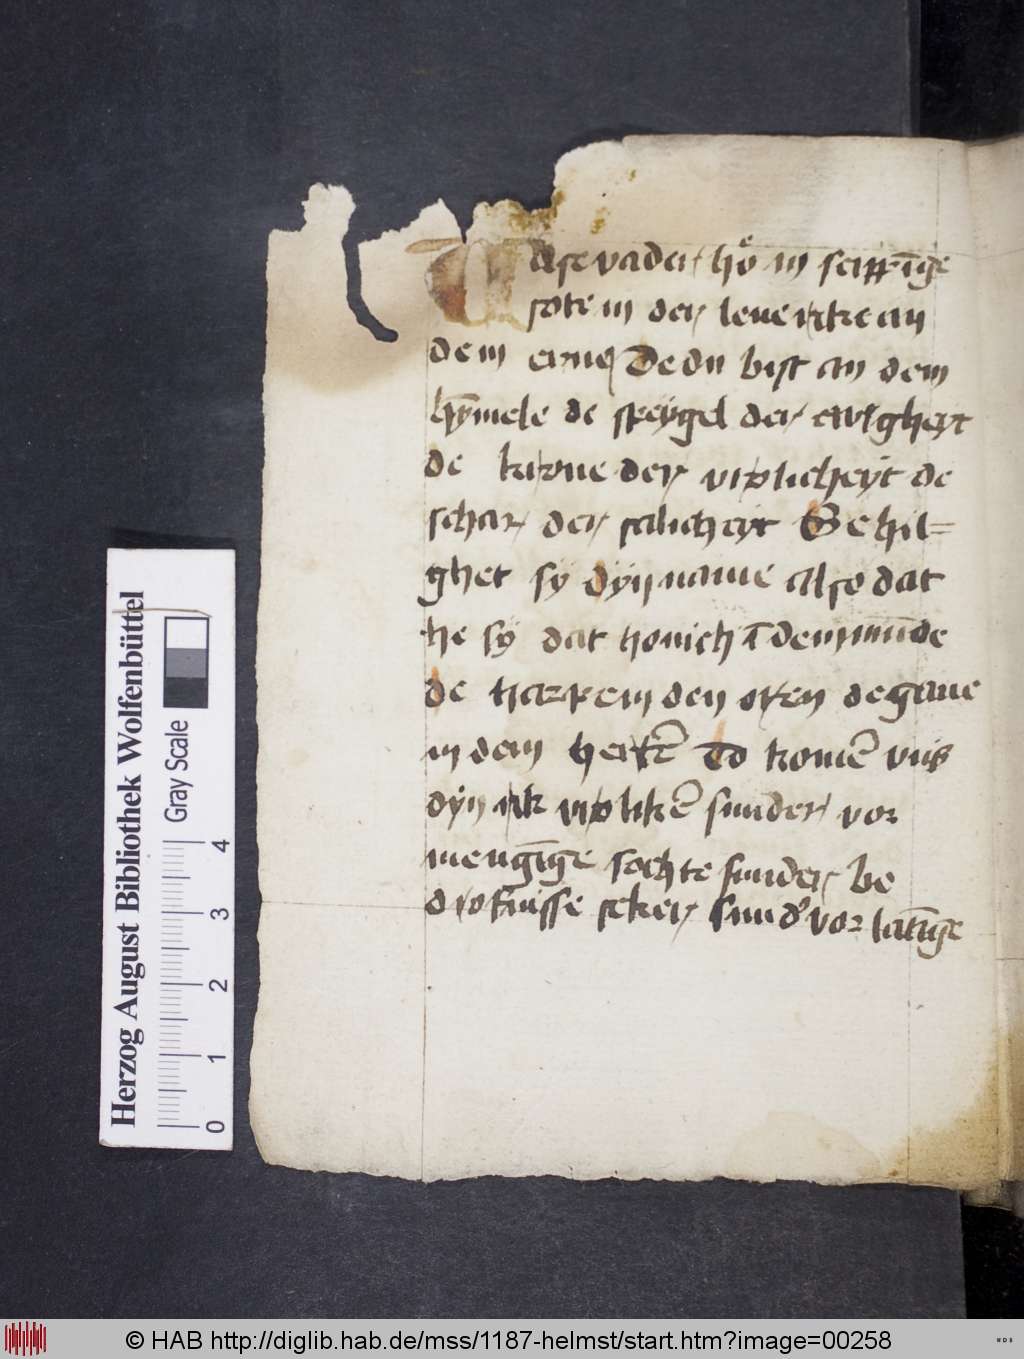 vse vader ho in scippīge
sote in der leue rike an
dem erue De du bist an dem
hȳmele de speygel der ewigheyt
de krone der vrolicheyt de
schar der salicheyt Gehil=
ghet sy dyn name also dat
he sy dat honich ī dem mūde
de harpe in den oren de gaue
in dem hertē To komē vns
dyn rik vrolikē sunder vor
mengīge sochte sunder be
drofnisse seker sund' vor latīge
Herzog August Bibliothek Wolfenbüttel
Gray Scale
0 1 2 3 4
© HAB http://diglib.hab.de/mss/1187-helmst/start.htm?image=00258